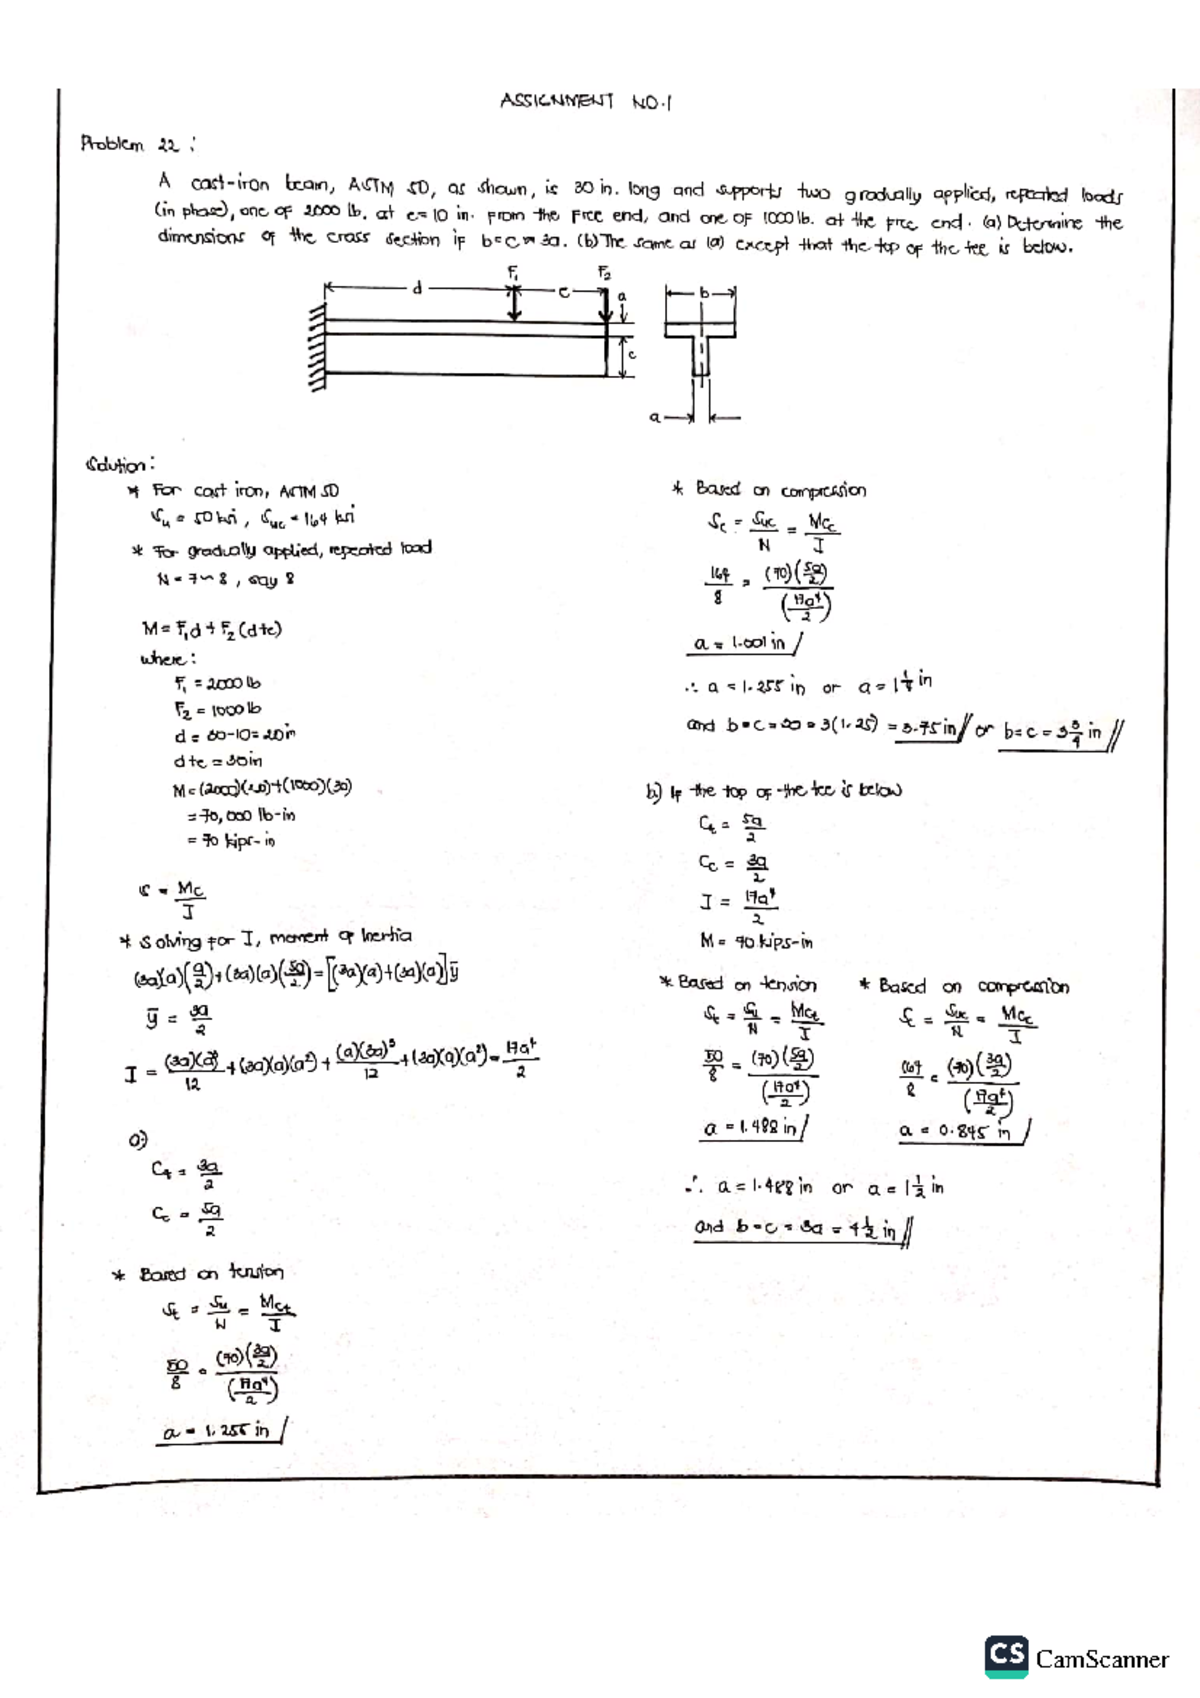 ASSIGNMENT NO.1
Problem 22 :
A cast-iron beam, ASTM 50, as shown, is 30 in. long and supports two gradually applied, repeated loads
(in phase), one of 2000 lb. at e=10 in. from the free end, and one of 1000 lb. at the free end. (a) Determine the
dimensions of the cross section if b=c=3a. (b) The same as (a) except that the top of the tee is below.
F₁ F₂
d e a b
c
a
Solution:
* For cast iron, ASTM 50
Su = 50 ksi, Suc = 164 ksi
* For gradually applied, repeated load
N = 7~8, say 8
M = F₁d + F₂(d+e)
where:
F₁ = 2000 lb
F₂ = 1000 lb
d = 30-10 = 20 in
d+e = 30 in
M = (2000)(20)+(1000)(30)
= 70,000 lb-in
= 70 kips-in
s = Mc/I
* Solving for I, moment of Inertia
(3a)(a)(a/2)+(3a)(a)(5a/2) = [(3a)(a)+(3a)(a)]ȳ
ȳ = 3a/2
I = (3a)(a)³/12 + (3a)(a)(a²) + (a)(3a)³/12 + (3a)(a)(a²) = 17a⁴/2
a)
Ct = 3a/2
Cc = 5a/2
* Based on tension
St = Su/N = MCt/I
50/8 = (70)(3a/2)/(17a⁴/2)
a = 1.255 in
* Based on compression
Sc = Suc/N = MCc/I
164/8 = (70)(5a/2)/(17a⁴/2)
a = 1.001 in
∴ a = 1.255 in or a = 1 1/4 in
and b=c=3a = 3(1.25) = 3.75 in or b=c = 3 3/4 in
b) If the top of the tee is below
Ct = 5a/2
Cc = 3a/2
I = 17a⁴/2
M = 70 kips-in
* Based on tension
St = Su/N = MCt/I
50/8 = (70)(5a/2)/(17a⁴/2)
a = 1.488 in
* Based on compression
Sc = Suc/N = MCc/I
164/8 = (70)(3a/2)/(17a⁴/2)
a = 0.845 in
∴ a = 1.488 in or a = 1 1/2 in
and b=c = 3a = 4 1/2 in
CS CamScanner